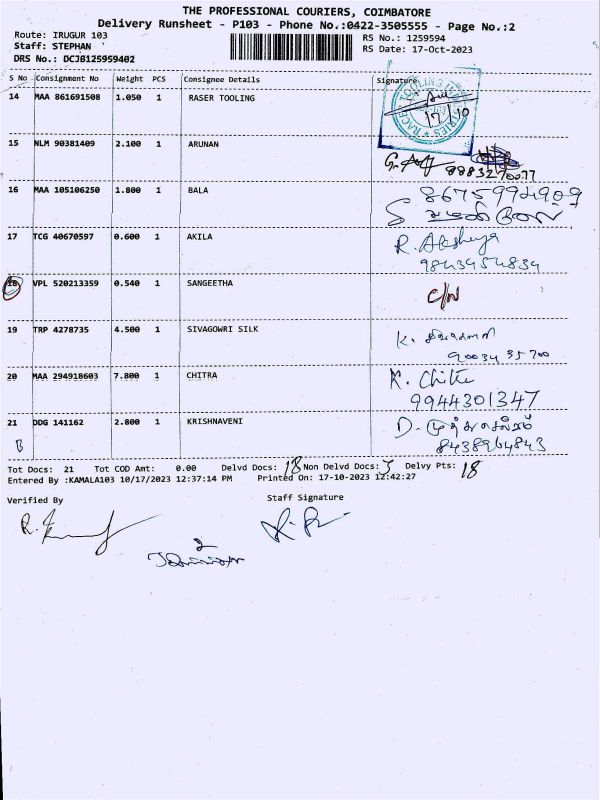 THE PROFESSIONAL COURIERS, COIMBATORE
Delivery Runsheet - P103 - Phone No.:0422-3505555 - Page No.:2
Route: IRUGUR 103 RS No.: 1259594
Staff: STEPHAN RS Date: 17-Oct-2023
DRS No.: DCJB125959402
S No Consignment No Weight PCS Consignee Details Signature
14 MAA 861691508 1.050 1 RASER TOOLING 17/10
15 NLM 90381409 2.100 1 ARUNAN
16 MAA 105106250 1.800 1 BALA
8675994909
17 TCG 40670597 0.600 1 AKILA R. Akshaya
9843454834
18 VPL 520213359 0.540 1 SANGEETHA
19 TRP 4278735 4.500 1 SIVAGOWRI SILK K.
90034 35700
20 MAA 294918603 7.800 1 CHITRA K. Chitu
9944301347
21 DDG 141162 2.800 1 KRISHNAVENI D.
B 8438964843
Tot Docs: 21 Tot COD Amt: 0.00 Delvd Docs: 18 Non Delvd Docs: 3 Delvy Pts: 18
Entered By :KAMALA103 10/17/2023 12:37:14 PM Printed On: 17-10-2023 12:42:27
Verified By Staff Signature